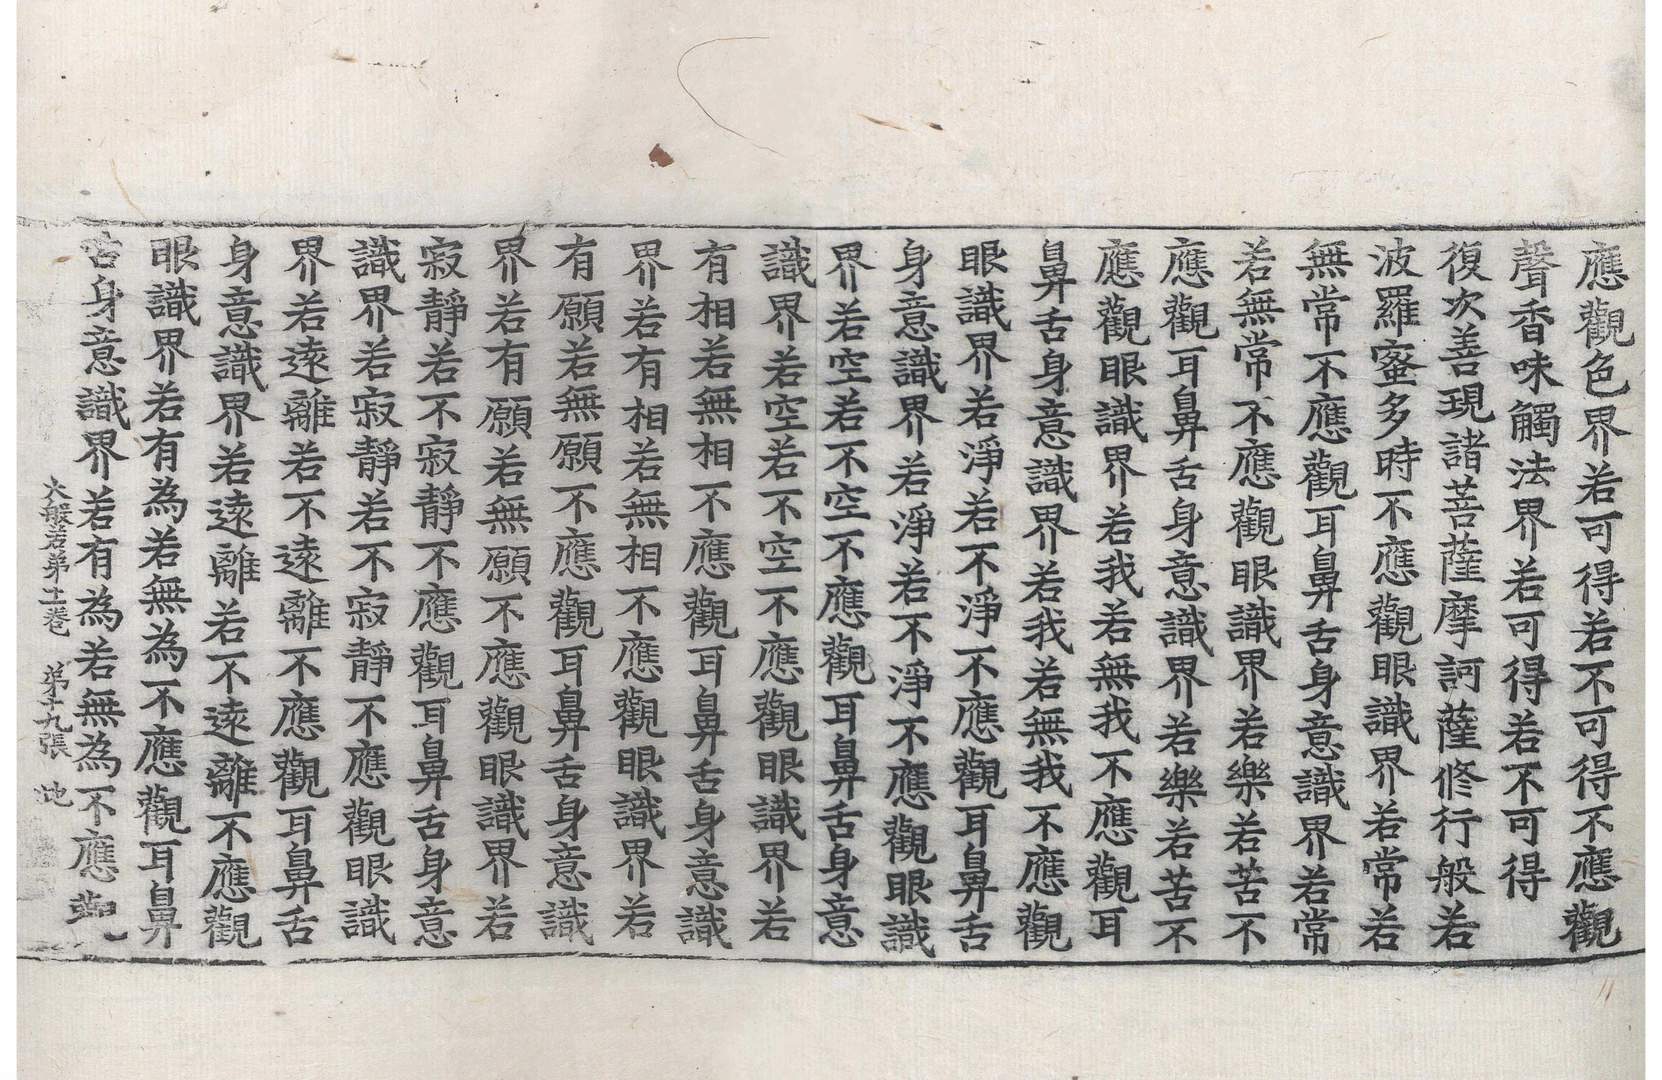 應觀色界若可得若不可得不應觀
聲香味觸法界若可得若不可得
復次善現諸菩薩摩訶薩修行般若
波羅蜜多時不應觀眼識界若常若
無常不應觀耳鼻舌身意識界若常
若無常不應觀眼識界若樂若苦不
應觀耳鼻舌身意識界若樂若苦不
應觀眼識界若我若無我不應觀耳
鼻舌身意識界若我若無我不應觀
眼識界若淨若不淨不應觀耳鼻舌
身意識界若淨若不淨不應觀眼識
界若空若不空不應觀耳鼻舌身意
識界若空若不空不應觀眼識界若
有相若無相不應觀耳鼻舌身意識
界若有相若無相不應觀眼識界若
有願若無願不應觀耳鼻舌身意識
界若有願若無願不應觀眼識界若
寂靜若不寂靜不應觀耳鼻舌身意
識界若寂靜若不寂靜不應觀眼識
界若遠離若不遠離不應觀耳鼻舌
身意識界若遠離若不遠離不應觀
眼識界若有為若無為不應觀耳鼻
舌身意識界若有為若無為不應觀
大般若弟十一卷 弟十九張 地